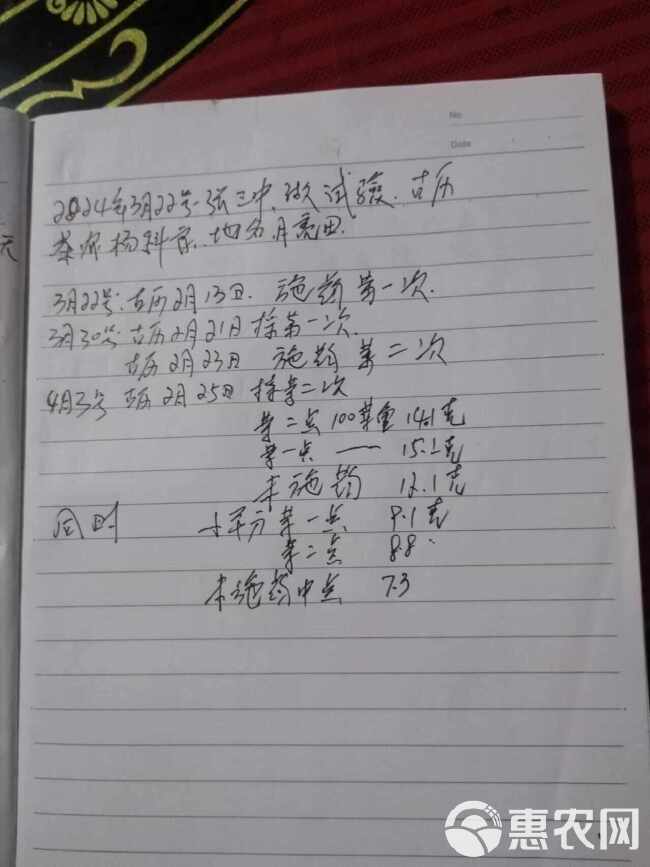 No
Date
2024年3月22号张三中做试验.古历
茶农杨科家.地名月亮田.
3月22号.古历2月13日.施药第一次.
3月30号古历2月21日採第一次.
古历2月23日 施药第二次
4月3号 古历2月25日採第二次
第二点100芽重 14.1克
第一点 —— 15.2克
未施药 12.1克
同时 十平方第一点 9.1克
第二点 8.8
未施药中点 7.3
天
惠农网